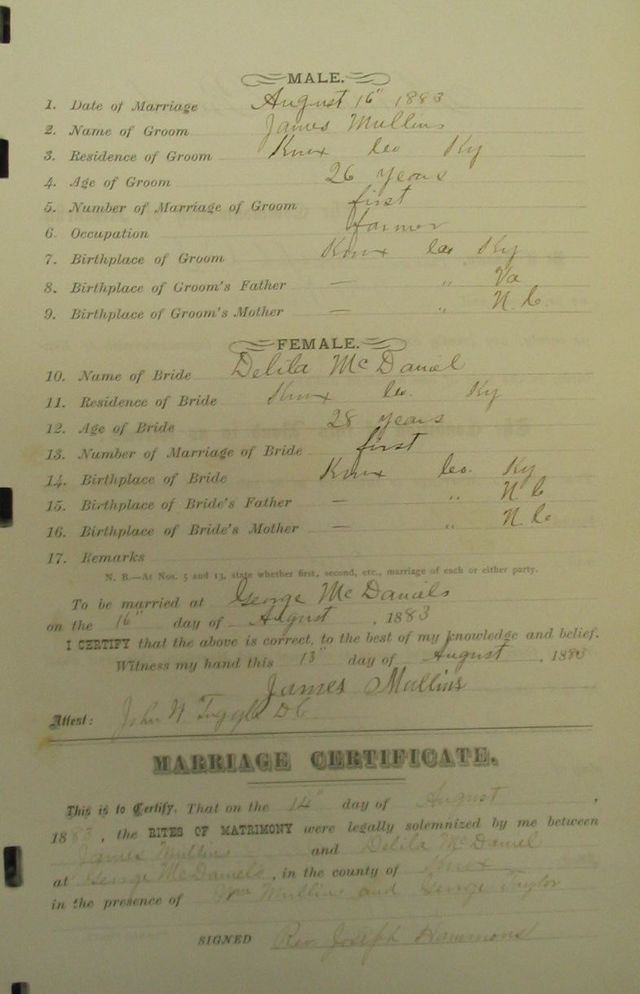 MALE.
1. Date of Marriage August 16" 1883
2. Name of Groom James Mullins
3. Residence of Groom Knox Co Ky
4. Age of Groom 26 years
5. Number of Marriage of Groom first
6. Occupation farmer
7. Birthplace of Groom Knox Co Ky
8. Birthplace of Groom's Father — " Va
9. Birthplace of Groom's Mother — " N. C
FEMALE.
10. Name of Bride Delila McDaniel
11. Residence of Bride Knox Co. Ky
12. Age of Bride 28 years
13. Number of Marriage of Bride first
14. Birthplace of Bride Knox Co. Ky
15. Birthplace of Bride's Father — " N C
16. Birthplace of Bride's Mother — " N. C
17. Remarks
N. B.—At Nos. 5 and 13, state whether first, second, etc., marriage of each or either party.
To be married at George McDaniels
on the 16" day of August, 1883
I CERTIFY that the above is correct, to the best of my knowledge and belief.
Witness my hand this 13" day of August, 1883
James Mullins
Attest: John H. DC
MARRIAGE CERTIFICATE.
This is to Certify, That on the 14" day of August,
1883, the RITES OF MATRIMONY were legally solemnized by me between
James Mullins and Delila McDaniel
at George McDaniels, in the county of Knox
in the presence of Wm Mullins and George Taylor
SIGNED Rev Joseph Hammons